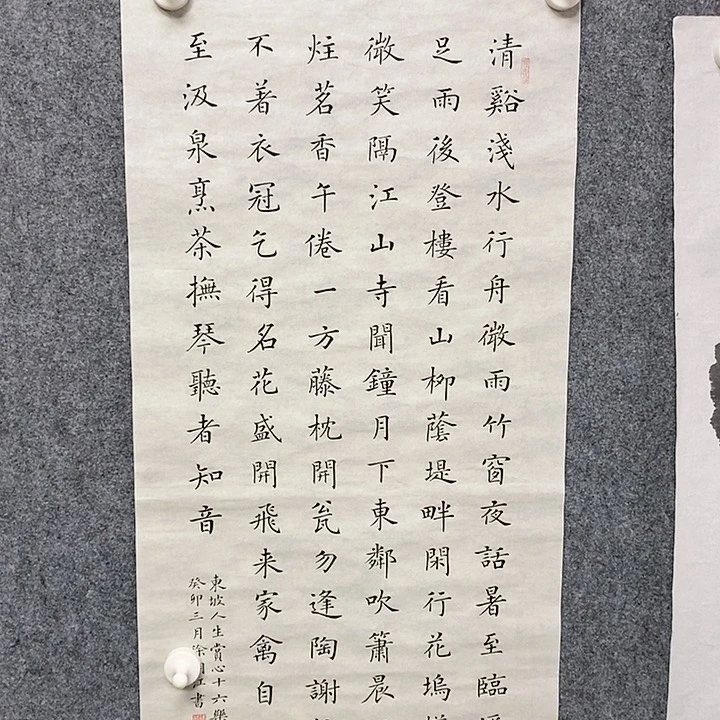 清谿淺水行舟微雨竹窗夜話暑至臨
足雨後登樓看山柳蔭堤畔閑行花塢
微笑隔江山寺聞鐘月下東鄰吹簫晨
炷茗香午倦一方藤枕開瓮勿逢陶謝
不着衣冠乞得名花盛開飛来家禽自
至汲泉烹茶撫琴聽者知音
東坡人生賞心十六樂
癸卯三月徐江書